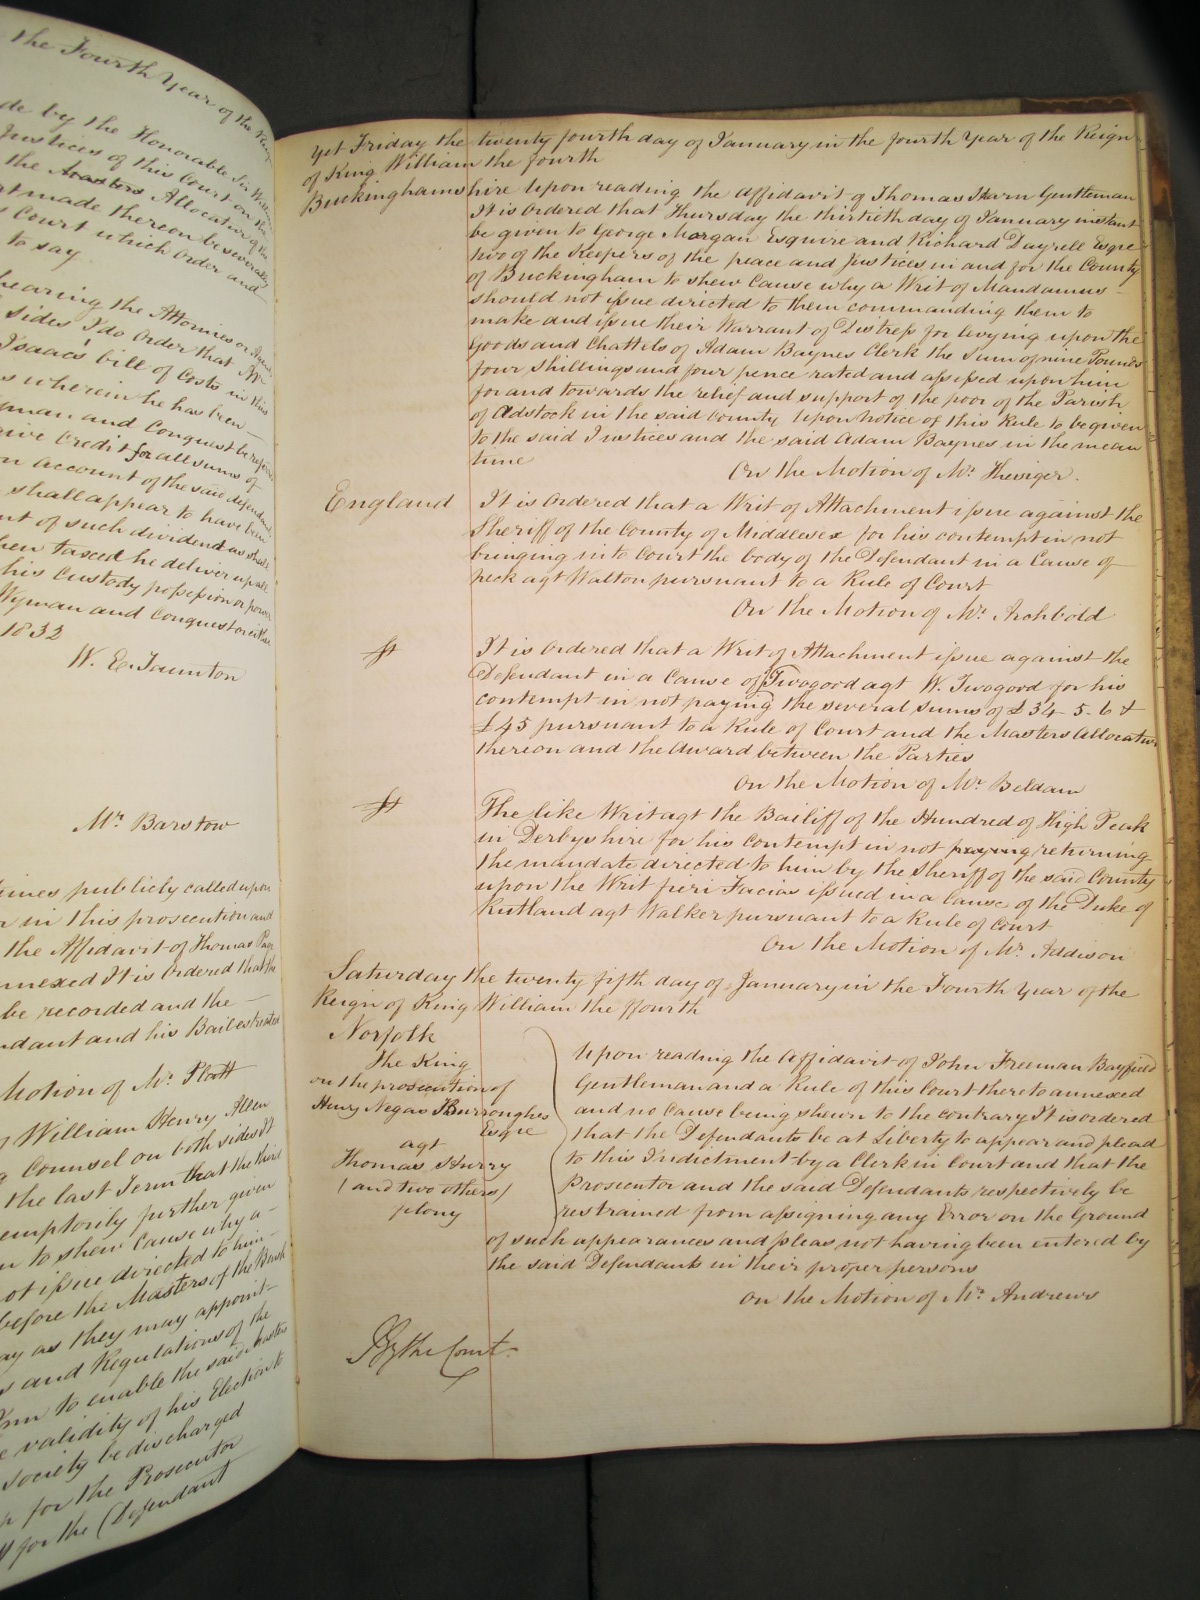 the Fourth Year of the Reign
de by the Honorable Sir William
Justices of this Court on the
the Masters Allocatur of the
rt made thereon be severally
s Court which Order and
to say
hearing the Attornies or
sides I do Order that Mr
Isaacs' bill of Costs in this
s wherein he has been
yman and Conquest be referred
give Credit for all sums of
on account of the said defendant
shall appear to have been
nt of such dividend as shall
hen taxed he deliver up all
his Custody possession or power
Wyman and Conquest or either
1832
W. E. Taunton
Mr. Barstow
times publicly called upon
r in this prosecution and
the Affidavit of Thomas Page
nnexed It is Ordered that the
be recorded and the
ndant and his Bail estreated
Motion of Mr. Platt
William Henry Allen
g Counsel on both sides It
the last Term that the third
emptorily further given
n to shew Cause why a
not issue directed to him
before the Masters of the Bench
ay as they may appoint
s and Regulations of the
Inn to enable the said Masters
e validity of his Election to
Society be discharged
for the Prosecutor
for the Defendant
Yet Friday the twenty fourth day of January in the fourth Year of the Reign
of King William the fourth
Buckinghamshire Upon reading the Affidavit of Thomas Hearn Gentleman
It is Ordered that Thursday the thirtieth day of January instant
be given to George Morgan Esquire and Richard Dayrell Esqre
two of the Keepers of the peace and Justices in and for the County
of Buckingham to shew Cause why a Writ of Mandamus
should not issue directed to them commanding them to
make and issue their Warrant of Distress for levying upon the
Goods and Chattels of Adam Baynes Clerk the Sum of nine Pounds
four Shillings and four pence rated and assessed upon him
for and towards the relief and support of the poor of the Parish
of Adstock in the said County Upon Notice of this Rule to be given
to the said Justices and the said Adam Baynes in the mean
time
On the Motion of Mr. Thesiger.
England
It is Ordered that a Writ of Attachment issue against the
Sheriff of the County of Middlesex for his contempt in not
bringing into Court the body of the Defendant in a Cause of
Peck agt Walton pursuant to a Rule of Court
On the Motion of Mr. Archbold
It is Ordered that a Writ of Attachment issue against the
Defendant in a Cause of Twogood agt W. Twogood for his
contempt in not paying the several Sums of £34-5-6 &
£45 pursuant to a Rule of Court and the Masters Allocatur
thereon and the Award between the Parties
On the Motion of Mr Beldam
The like Writ agt the Bailiff of the Hundred of High Peak
in Derbyshire for his Contempt in not paying returning
the mandate directed to him by the Sheriff of the said County
upon the Writ fieri Facias issued in a Cause of the Duke of
Rutland agt Walker pursuant to a Rule of Court
On the Motion of Mr. Addison
Saturday the twenty fifth day of January in the Fourth Year of the
Reign of King William the ffourth
Norfolk
The King
on the prosecution of
Henry Negus Burroughes
Esqre
agt
Thomas Hurry
(and two others)
felony
Upon reading the Affidavit of John Freeman Bayfield
Gentleman and a Rule of this Court thereto annexed
and no Cause being shewn to the contrary It is ordered
that the Defendants be at Liberty to appear and plead
to this Indictment by a Clerk in Court and that the
Prosecutor and the said Defendants respectively be
restrained from assigning any Error on the Ground
of such appearances and pleas not having been entered by
the said Defendants in their proper persons
On the Motion of Mr. Andrews
By the Court